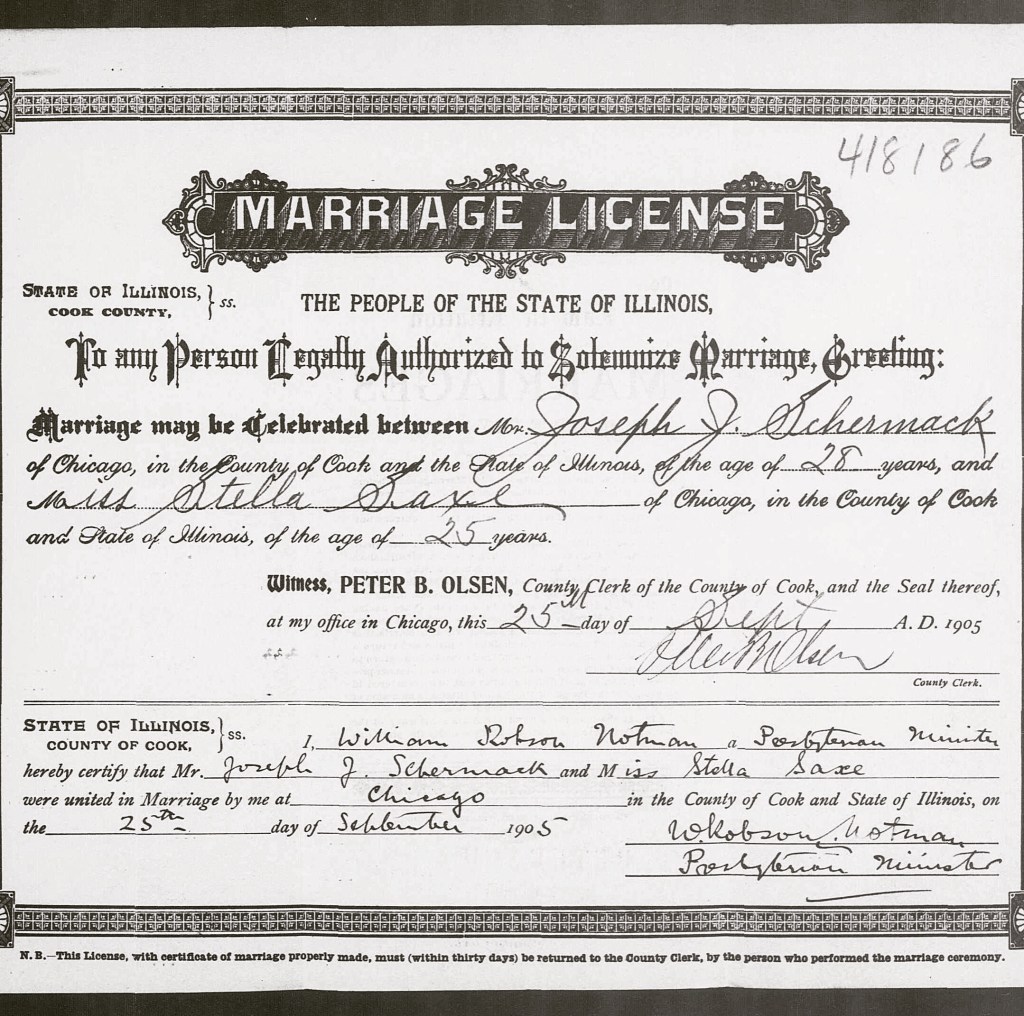 418186
MARRIAGE LICENSE
STATE OF ILLINOIS, COOK COUNTY, } ss. THE PEOPLE OF THE STATE OF ILLINOIS,
To any Person Legally Authorized to Solemnize Marriage, Greeting:
Marriage may be Celebrated between Mr. Joseph J. Schermack
of Chicago, in the County of Cook and the State of Illinois, of the age of 28 years, and
Miss Stella Saxe of Chicago, in the County of Cook
and State of Illinois, of the age of 25 years.
Witness, PETER B. OLSEN, County Clerk of the County of Cook, and the Seal thereof,
at my office in Chicago, this 25th day of Sept A. D. 1905
Peter B Olsen
County Clerk.
STATE OF ILLINOIS, COUNTY OF COOK, } ss. I, William Robson Notman a Presbyterian Minister
hereby certify that Mr. Joseph J. Schermack and Miss Stella Saxe
were united in Marriage by me at Chicago in the County of Cook and State of Illinois, on
the 25th day of September 1905 W. Robson Notman
Presbyterian Minister
N. B.—This License, with certificate of marriage properly made, must (within thirty days) be returned to the County Clerk, by the person who performed the marriage ceremony.